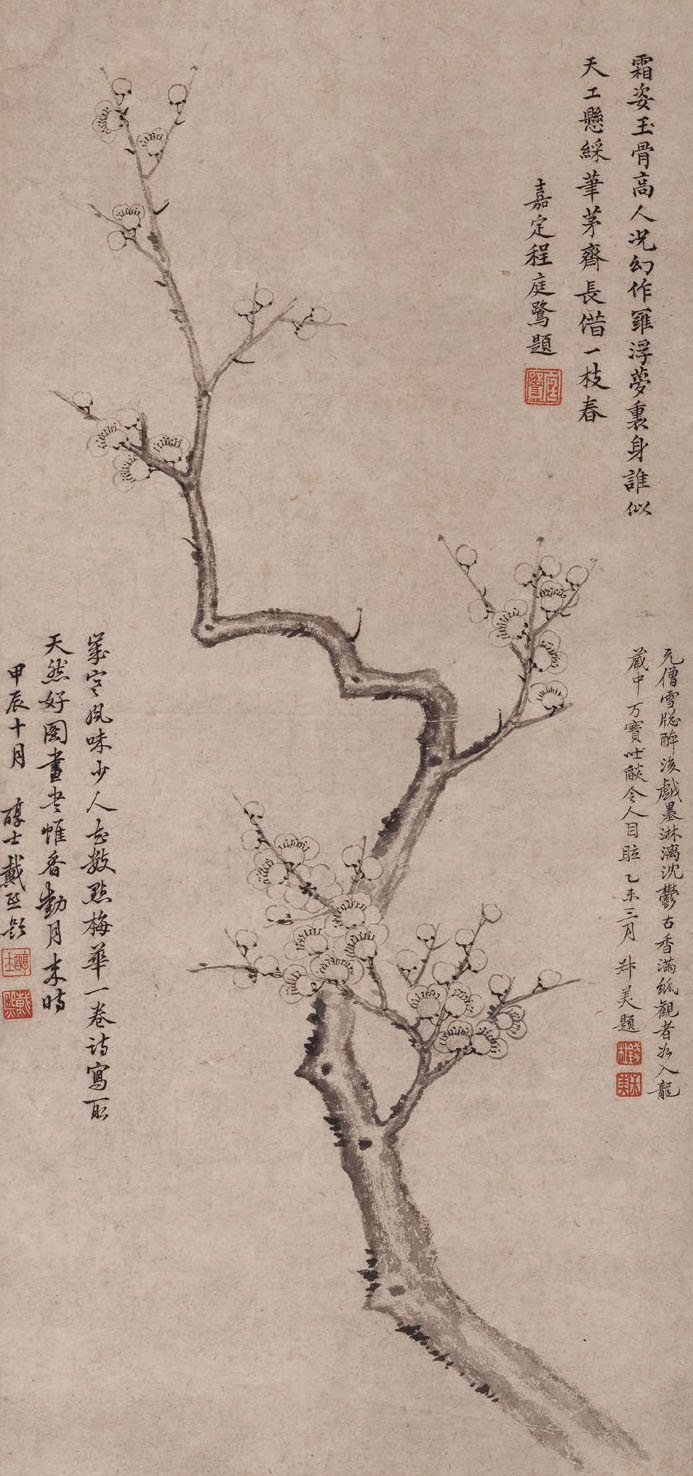 霜姿玉骨高人况幻作羅浮夢裏身誰似
天工懸綵筆茅齋長借一枝春
嘉定程庭鷺題
元僧雪窓醉後戲墨淋漓沈鬱古香滿紙觀者如入龍
藏中万寶吐燄令人目眩乙未三月 孙美題
歲寒風味少人知數點梅華一卷詩寫取
天然好圖畫 帷香動月來時
甲辰十月 醇士戴熙題
醇士
戴熙